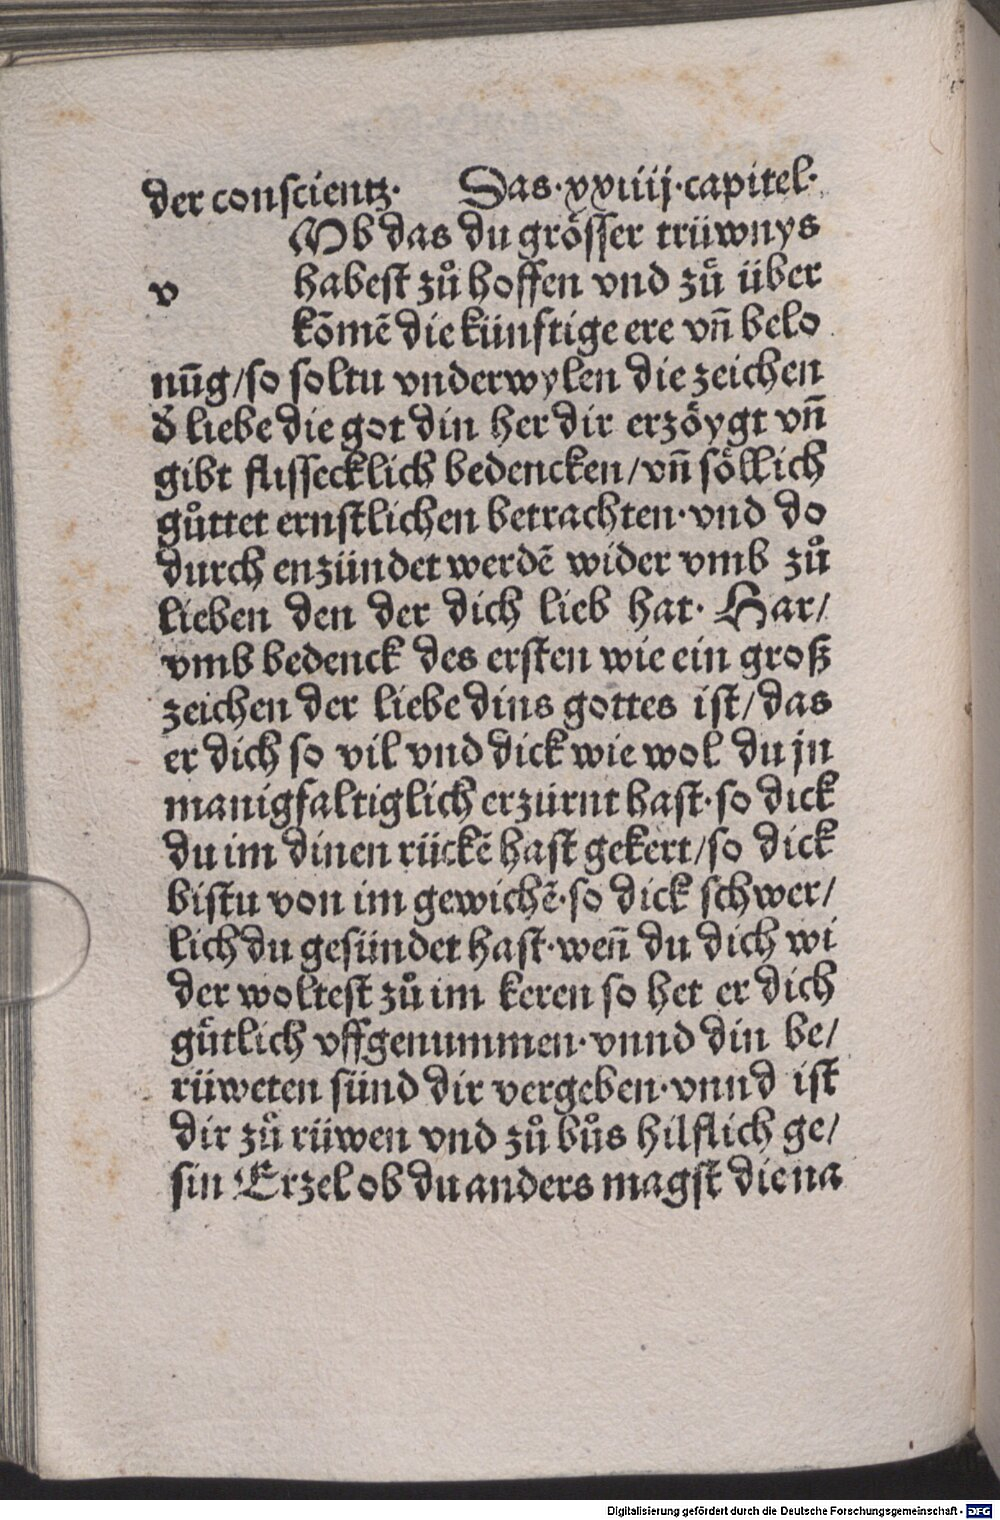 der conscientz· Das·xxiiij·capitel·
Mb das du grösser trüwnys
v habest zů hoffen vnd zů über
kōmē die künftige ere vn̄ belo
nūg/so soltu vnderwylen die zeichen
d̕ liebe die got din her dir erzöygt vn̄
gibt flissecklich bedencken/vn̄ söllich
gůttet ernstlichen betrachten·vnd do
durch enzündet werdē wider vmb zů
lieben den der dich lieb hat· Har/
vmb bedenck des ersten wie ein groß
zeichen der liebe dins gottes ist/das
er dich so vil vnd dick wie wol du jn
manigfaltiglich erzürnt hast·so dick
du im dinen rückē hast gekert/so dick
bistu von im gewichē·so dick schwer/
lich du gesündet hast·wen̄ du dich wi
der woltest zů im keren so het er dich
gůtlich vffgenummen·vnnd din be/
rüweten sünd dir vergeben·vnnd ist
dir zů rüwen vnd zů bůs hilflich ge/
sin Erzel ob du anders magst die na
Digitalisierung gefördert durch die Deutsche Forschungsgemeinschaft - DFG